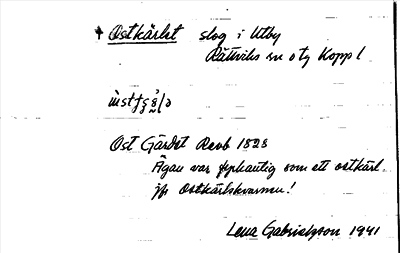 Ostkärlet slog i Utby
Rättviks sn o tg Kopp l
Ost Gärdet Revb 1828
Ägan var fyrkantig som ett ostkärl.
jfr Ostkärlskvarnen!
Lena Gabrielsson 1941